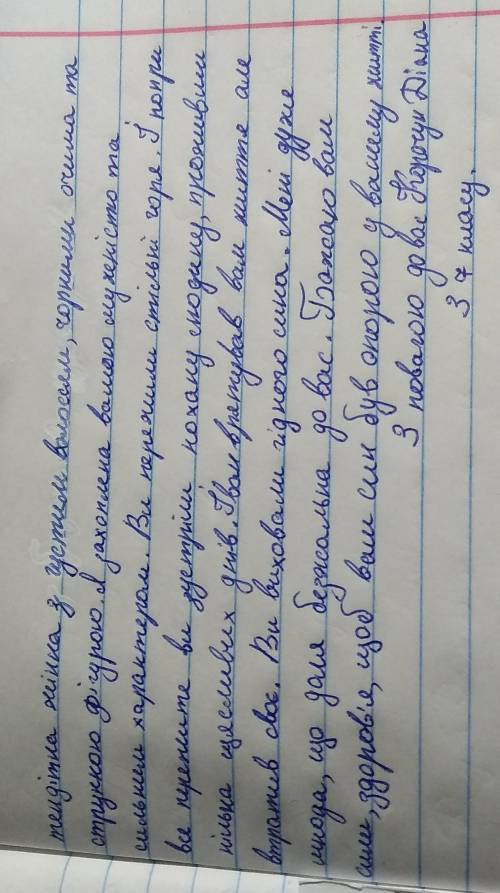 тендітна жінка з густим волоссям, чорними очима та
стрункою фігурою. Я захоплена вашою мужністю та
сильним характером. Ви пережили стільки горя. І попри
все пусните ви зустріли кохану людину, проживши
кілька щасливих днів. Іван врятував вам життя але
втратив своє. Ви виховали гідного сина. Мені дуже
шкода, що доля безжальна до вас. Бажаю вам
сили, здоров'я, щоб ваш син був опорою у вашому житті.
З повагою до вас Корогун Діана
З 7 класу.